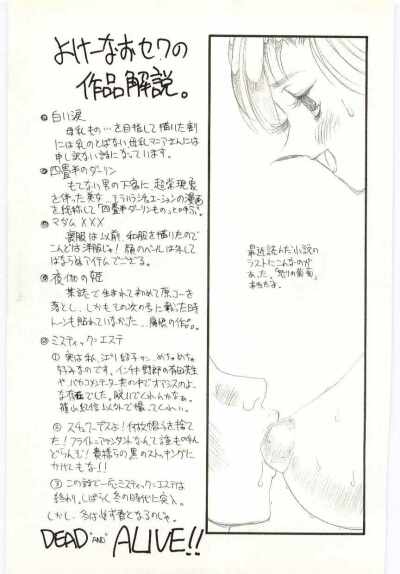 よけーなおセワの
作品解説。
◎白い涙
母乳もの…を目指して描いた割
には乳のとばない母乳マニアさんには
申し訳ない話になっています。
◎四畳半のダーリン
もてない男の下宿に、超常現象
を伴った美女…
というシチュエーションの漫画
を総称して「四畳半ダーリンもの」と呼ぶ。
◎マダムXXX
喪服は以前、和服を描いたので
こんどは洋服じゃ!顔のベールは外して
はならぬアイテムでござる。
◎夜伽の姫
某誌で生まれて初めて原コーを
落とし、しかもその次の号に載った時
トーンも貼れていなかった…痛恨の作品。
◎ミスティック・エステ
①実は私、
めちゃめちゃ
好みなのです。インチキ野郎の
やバカコメンテーター共の中でオアシスのよう
な存在でした。脱いでくれんかなぁ。
篠山紀信以外で撮ってくれい。
②スチュワーデスよ!何故帽子を捨て
た!フライトアテンダントなんて誰も呼ん
どらんぞ!貴様らの黒のストッキングに
かけてもな!!
③この話で一応ミスティック・エステは
終わり。しばらく冬の時代に突入。
しかし、冬は必ず春となるのじゃ。
DEAD "AND" ALIVE!!
最近読んだ小説の
ラストにこんなのが
あった。「怒りの葡萄」